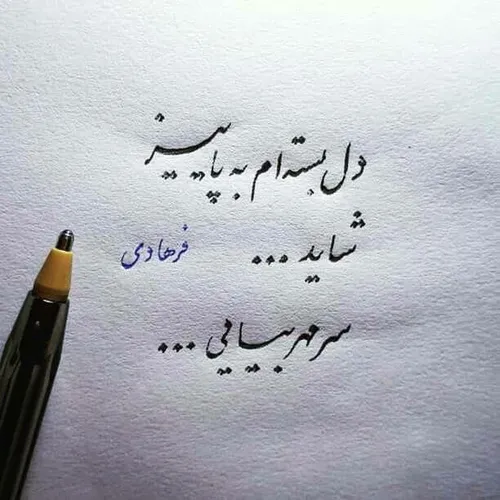 دل بسته ام به پاییز
شاید ...
فرهادی
سر مهر بیایی ...